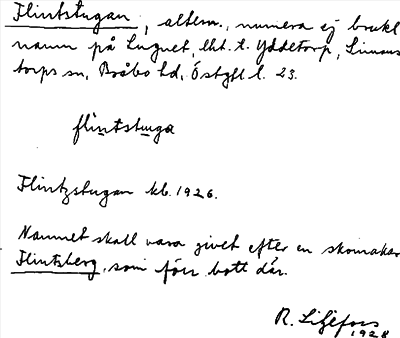 Flintstugan, altern., numera ej brukl.
namn på Lugnet, lht. t. Yddetorp, Simons
torps sn, Bråbo hd, Östgtl l. 23.
flintstuga
Flintzstugan kb. 1926.
Namnet skall vara givet efter en skomakar
Flintzberg, som förr bott där.
R. Liljefors
1928